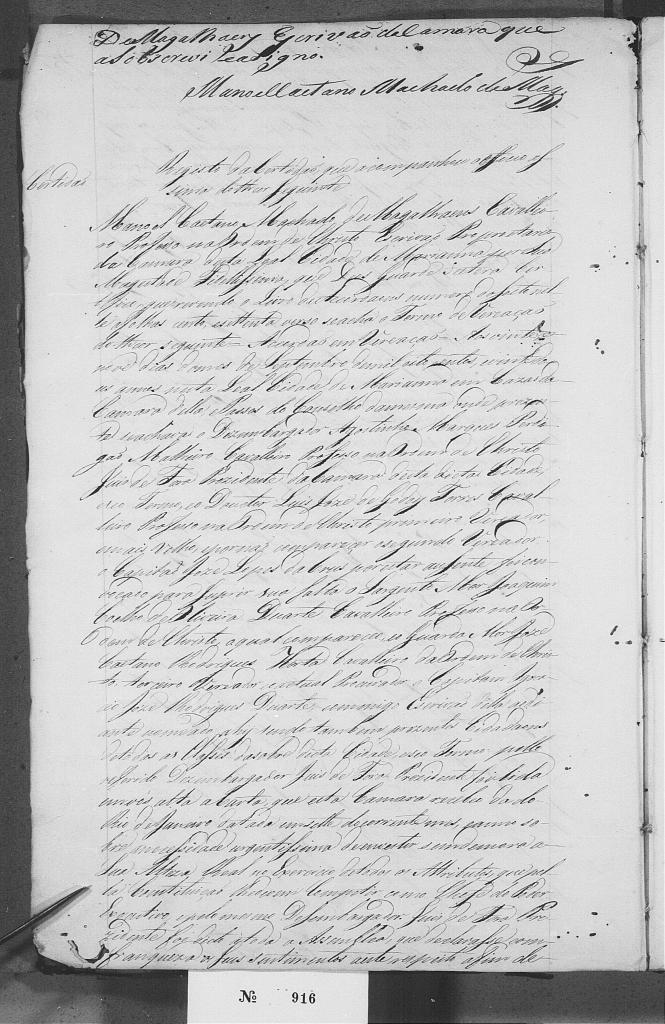 De Magalhaens Escrivaõ da Camara que
a Sobscrevi e asigno.
Manoel Caetano Machado de Mag.
Certidaõ
Registo da Certidaõ, que acompanhou o officio
do theor seguinte
Manoel Caetano Machado de Magalhaens Cavallei
ro Professo na Ordem de Christo Escrivaõ Proprietario
da Camara desta Leal Cidade de Marianna por Sua
Magestade Fidelissima, que Deos Guarde etcetera Cer
tifico, que revendo o Livro
a folhas cento, e settenta verso se acha o Termo de Vereaçaõ
do theor seguinte Accordaõ em Vereaçaõ Aos vinte e
nove dias do mes de Septembro de mil oito centos, e vinte e do
us annos nesta Leal Cidade de Marianna em Cazas da
Camara della e Passos do Conselho da mesma onde prezen
te se achava o Dezembargador Agostinho Marques Perdi
gaõ Malheiro Cavalleiro Professo na Ordem de Christo
Juis de Fora Prezidente da Camara desta dicta Cidade,
e seo Termo, e o Doutor Luis Jozé de Godoy Torres Caval
leiro Professo na Ordem de Christo primeiro Vereador,
e mais velho, e por naõ comparecer o segundo Vereador
o Capitaõ Jozé Lopes da Cruz por estar auzente, foi con
vocado para suprir sua falta o Sargento Mor Joaquim
Coelho de Oliveira Duarte Cavalleiro Professo na Or
dem de Christo, o qual compareceu, e o Guarda Mor Jozé
Caetano Rodrigues Horta Cavalleiro da Ordem de Chris
to terceiro Vereador, e o actual Procurador o Capitam
Jozé Rodrigues Duarte, comigo Escrivaõ della adi
ante nomeado, ahy sendo tambem prezente Cidadaons
de todas as Classes da sobre dicta Cidade, e seo Termo, pello
referido Dezembargador Juis de Fora Prezidente foi lida
em vós alta a Carta, que esta Camara recebeo da do
Rio de Janeiro datada em sette do corrente mes, e anno so
bre a necessidade urgentissima de investir sem demora a
Sua Alteza Real no Exercicio de todos os Attributos, que pel
la Constituiçaõ devem competir, como Chefe do Poder
Executivo, e pelo mesmo Dezembargador Juis de Fora Pre
zidente foi dicto a toda a Assemblea, que declarasse com
franqueza os seus sentimentos a este respeito a fim de
Nº 916